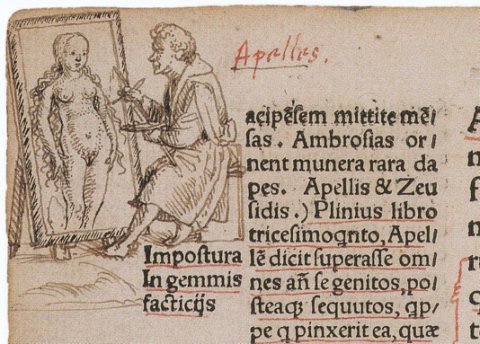 Apelles.
acipēſem mittite mē/
ſas. Ambroſias or/
nent munera rara da
pes. Apellis & Zeu
ſidis.) Plinius libro
triceſimoqnto, Apel/
lē dicit ſuperaſſe om/
nes añ ſe genitos, po/
ſteaq; ſequutos, qp/
pe q pinxerit ea, quæ
Impoſtura
In gemmis
facticijs